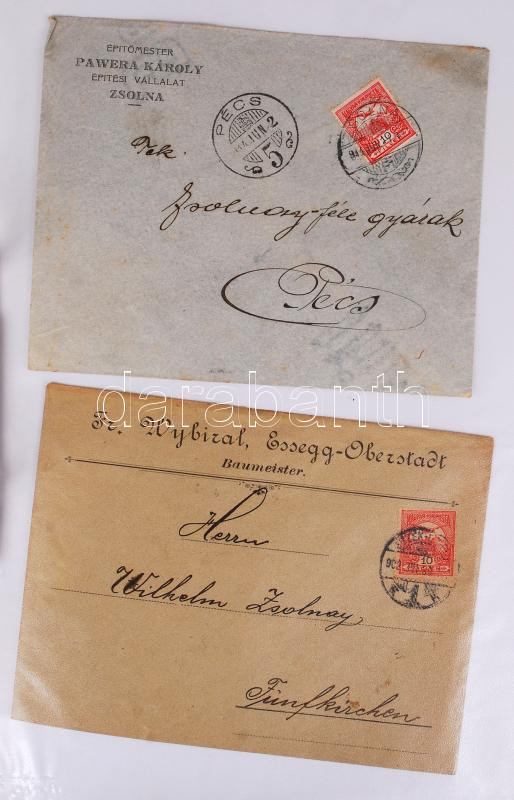 ÉPITŐMESTER
PAWERA KÁROLY
ÉPITÉSI VÁLLALAT
ZSOLNA
PÉCS
JUN. 2
5
10
Tek.
Zsolnay-féle gyárak
Pécs
darabanth
Fr. Wybiral, Essegg-Oberstadt
Baumeister.
10
Herrn
Wilhelm Zsolnay
Fünfkirchen